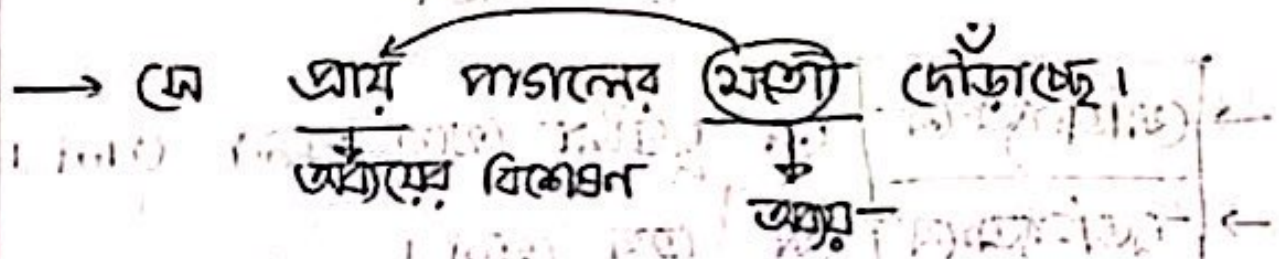 → সে প্রায় পাগলের মতো দৌঁড়াচ্ছে।
অব্যয়ের বিশেষণ
অব্যয়